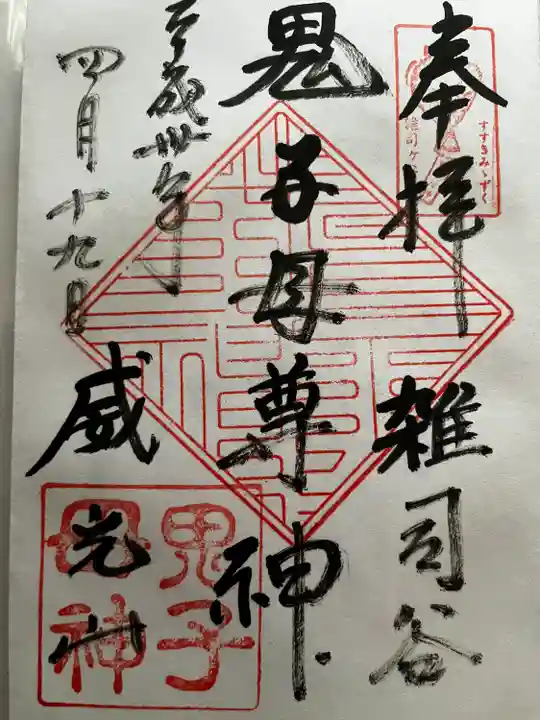 奉拝 雑司谷
すすきみゝずく
鬼子母尊神
威光山
平成卅年
四月十九日
鬼子
母神